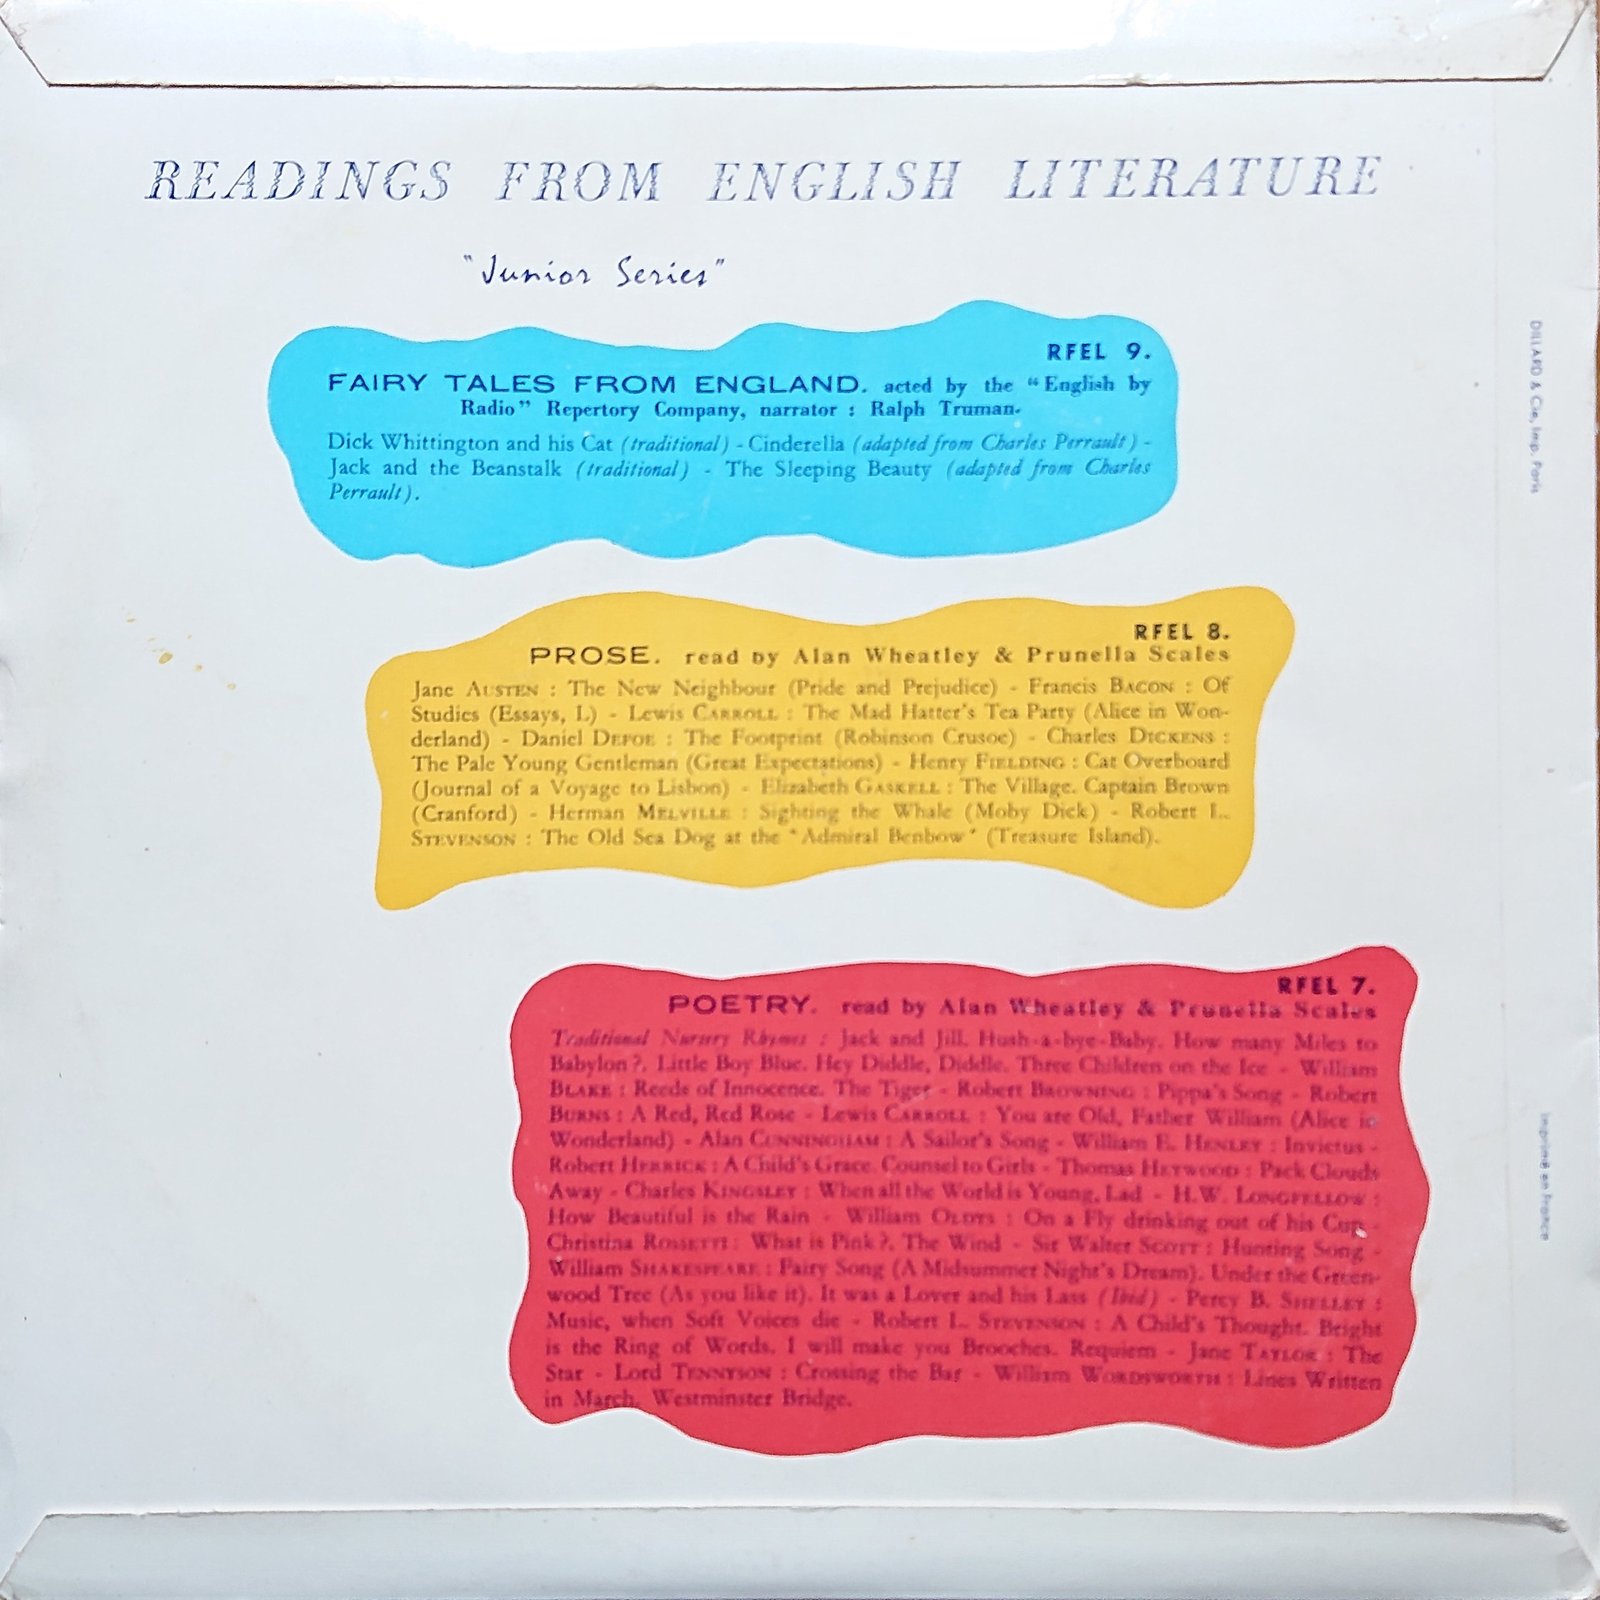 READINGS FROM ENGLISH LITERATURE
"Junior Series"
RFEL 9.
FAIRY TALES FROM ENGLAND. acted by the "English by
Radio" Repertory Company, narrator : Ralph Truman.
Dick Whittington and his Cat (traditional) - Cinderella (adapted from Charles Perrault) -
Jack and the Beanstalk (traditional) - The Sleeping Beauty (adapted from Charles
Perrault).
RFEL 8.
PROSE. read by Alan Wheatley & Prunella Scales
Jane AUSTEN : The New Neighbour (Pride and Prejudice) - Francis BACON : Of
Studies (Essays, L) - Lewis CARROLL : The Mad Hatter's Tea Party (Alice in Won-
derland) - Daniel DEFOE : The Footprint (Robinson Crusoe) - Charles DICKENS :
The Pale Young Gentleman (Great Expectations) - Henry FIELDING : Cat Overboard
(Journal of a Voyage to Lisbon) - Elizabeth GASKELL : The Village. Captain Brown
(Cranford) - Herman MELVILLE : Sighting the Whale (Moby Dick) - Robert L.
STEVENSON : The Old Sea Dog at the "Admiral Benbow" (Treasure Island).
RFEL 7.
POETRY. read by Alan Wheatley & Prunella Scales
Traditional Nursery Rhymes : Jack and Jill. Hush-a-bye-Baby. How many Miles to
Babylon ?. Little Boy Blue. Hey Diddle, Diddle. Three Children on the Ice - William
BLAKE : Reeds of Innocence. The Tiger - Robert BROWNING : Pippa's Song - Robert
BURNS : A Red, Red Rose - Lewis CARROLL : You are Old, Father William (Alice in
Wonderland) - Alan CUNNINGHAM : A Sailor's Song - William E. HENLEY : Invictus -
Robert HERRICK : A Child's Grace. Counsel to Girls - Thomas HEYWOOD : Pack Clouds
Away - Charles KINGSLEY : When all the World is Young, Lad - H.W. LONGFELLOW :
How Beautiful is the Rain - William OLDYS : On a Fly drinking out of his Cup -
Christina ROSSETTI : What is Pink ?. The Wind - Sir Walter SCOTT : Hunting Song -
William SHAKESPEARE : Fairy Song (A Midsummer Night's Dream). Under the Green-
wood Tree (As you like it). It was a Lover and his Lass (Ibid) - Percy B. SHELLEY :
Music, when Soft Voices die - Robert L. STEVENSON : A Child's Thought. Bright
is the Ring of Words. I will make you Brooches. Requiem - Jane TAYLOR : The
Star - Lord TENNYSON : Crossing the Bar - William WORDSWORTH : Lines Written
in March. Westminster Bridge.
DILLARD & Cie, Imp. Paris
Imprimé en France